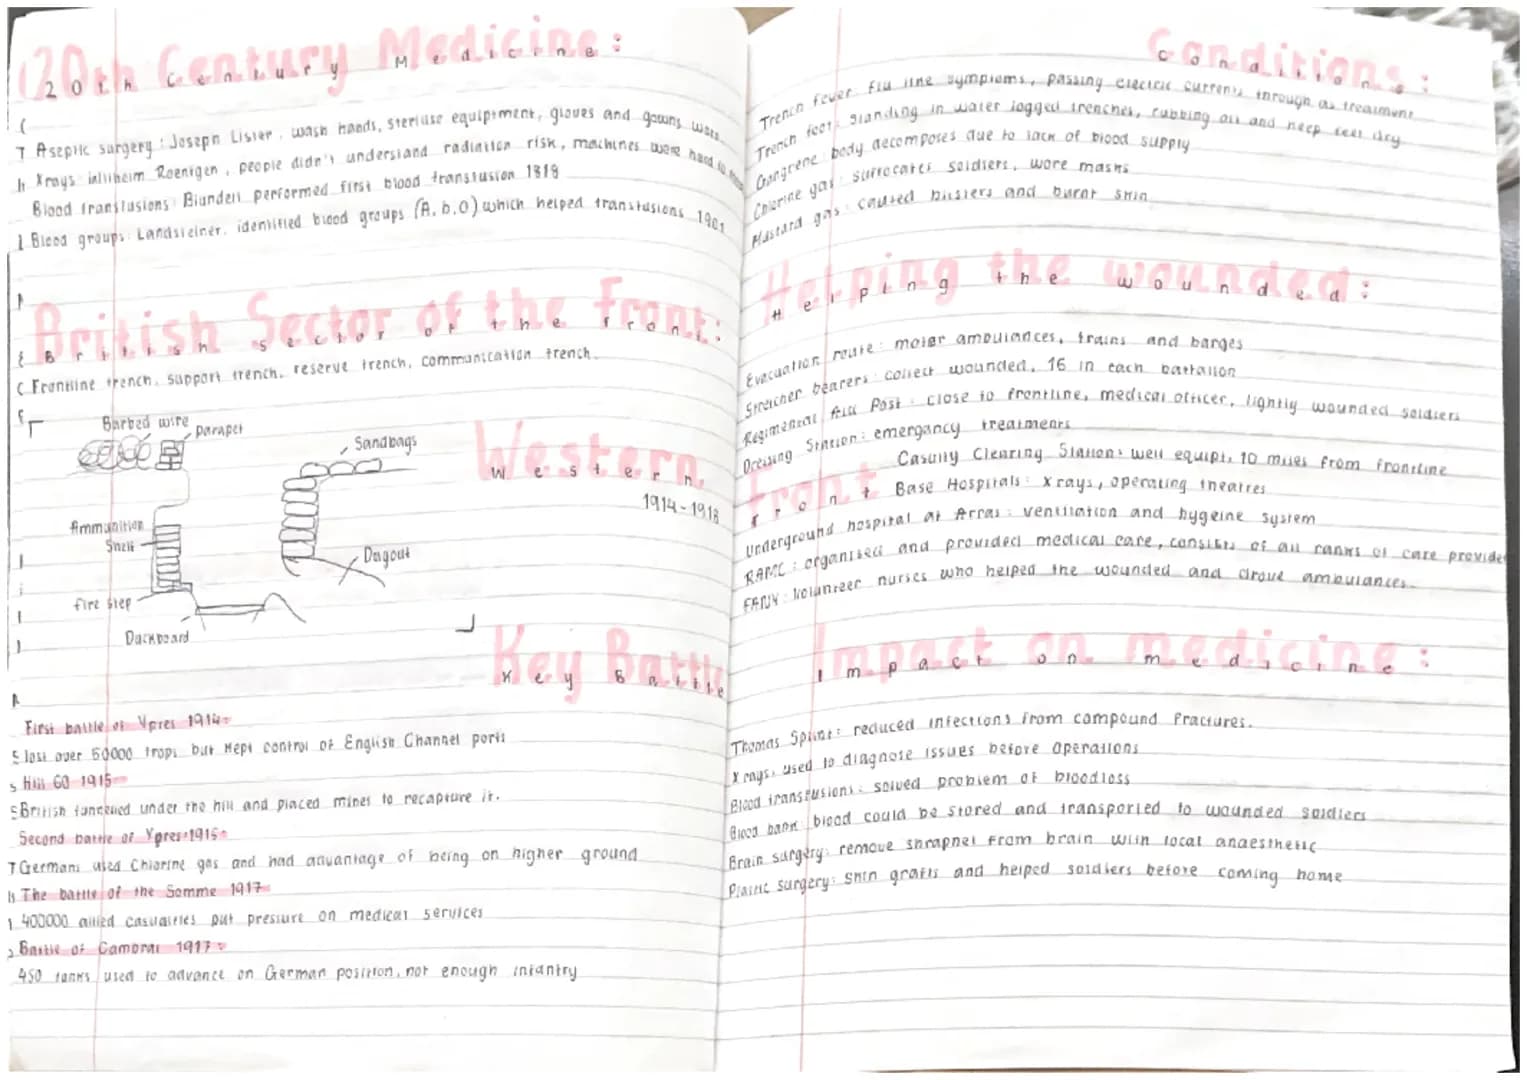 20th Century Medicine:
Aseptic surgery: Joseph Lister, wash hands, sterilise equiptment, gloves and gowns worn
X rays: Willheim Roentgen, people didn't understand radiation risk, machines were hard to move
Blood transfusions: Blundell performed first blood transfusion 1818
Blood groups: Landsteiner, identified blood groups (A, b, O) which helped transfusions 1901
British Sector of the Front:
Frontline trench, support trench, reserve trench, communication trench.
Barbed wire
parapet
Sandbags
Ammunition
Shelf
Dugout
Fire step
Duckboard
Western
1914-1918
Key Battle
First battle of Ypres 1914:
lost over 50000 trops but kept control of English Channel ports
Hill 60 1915
British tunnelled under the hill and placed mines to recapture it.
Second battle of Ypres 1915:
Germans used Chlorine gas and had advantage of being on higher ground
The battle of the Somme 1917
400000 allied casualties put pressure on medical services
Battle of Cambrai 1917:
450 tanks used to advance on German position, not enough infantry
Conditions:
Trench fever: Flu like symptoms, passing electric currents through as treatment
Trench foot: standing in water logged trenches, rubbing oil and keep feet dry
Gangrene: body decomposes due to lack of blood supply
Chlorine gas: suffocates soldiers, wore masks
Mustard gas: caused blisters and burnt skin
Helping the wounded:
Evacuation route: motor ambulances, trains and barges
Stretcher bearers: collect wounded, 16 in each battalion
Regimental Aid Post: close to frontline, medical officer, lightly wounded soldiers
Dressing Station: emergancy treatments
Casulty Clearing Station: well equipt, 10 miles from frontline
Front
Base Hospitals: X rays, operating theatres
Underground hospital at Arras: ventilation and hygeine system
RAMC: organised and provided medical care, consists of all ranks of care provider
FANY: Volunteer nurses who helped the wounded and drove ambulances.
Impact on medicine:
Thomas Splint: reduced infections from compound fractures.
X rays: used to diagnose issues before operations
Blood transfusions: solved problem of bloodloss
Blood bank: blood could be stored and transported to wounded soldiers
Brain surgery: remove shrapnel from brain with local anaesthetic
Plastic surgery: skin grafts and helped soldiers before coming home